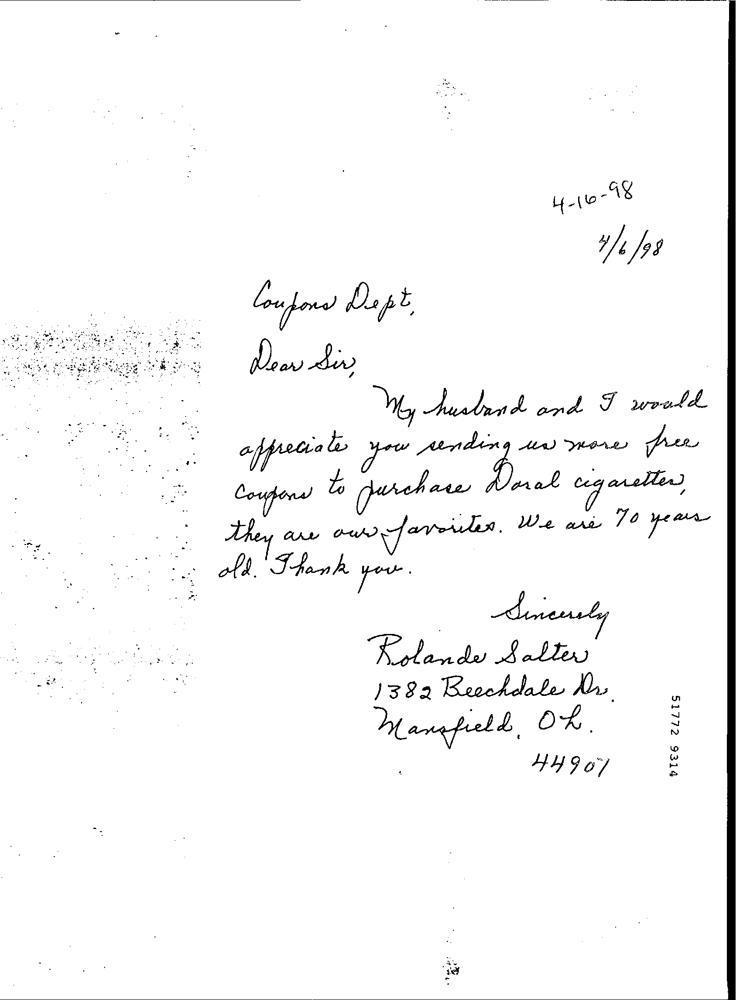 4-16-98
4/6/98
Coupons Dept,
Dear Sir,
My husband and I would
appreciate you sending us more free
coupons to purchase Doral cigarettes,
they are our favorites. We are 70 years
old. Thank you.
Sincerely
Rolande Salter
1382 Beechdale Dr.
Mansfield, Oh.
44907
51772 9314